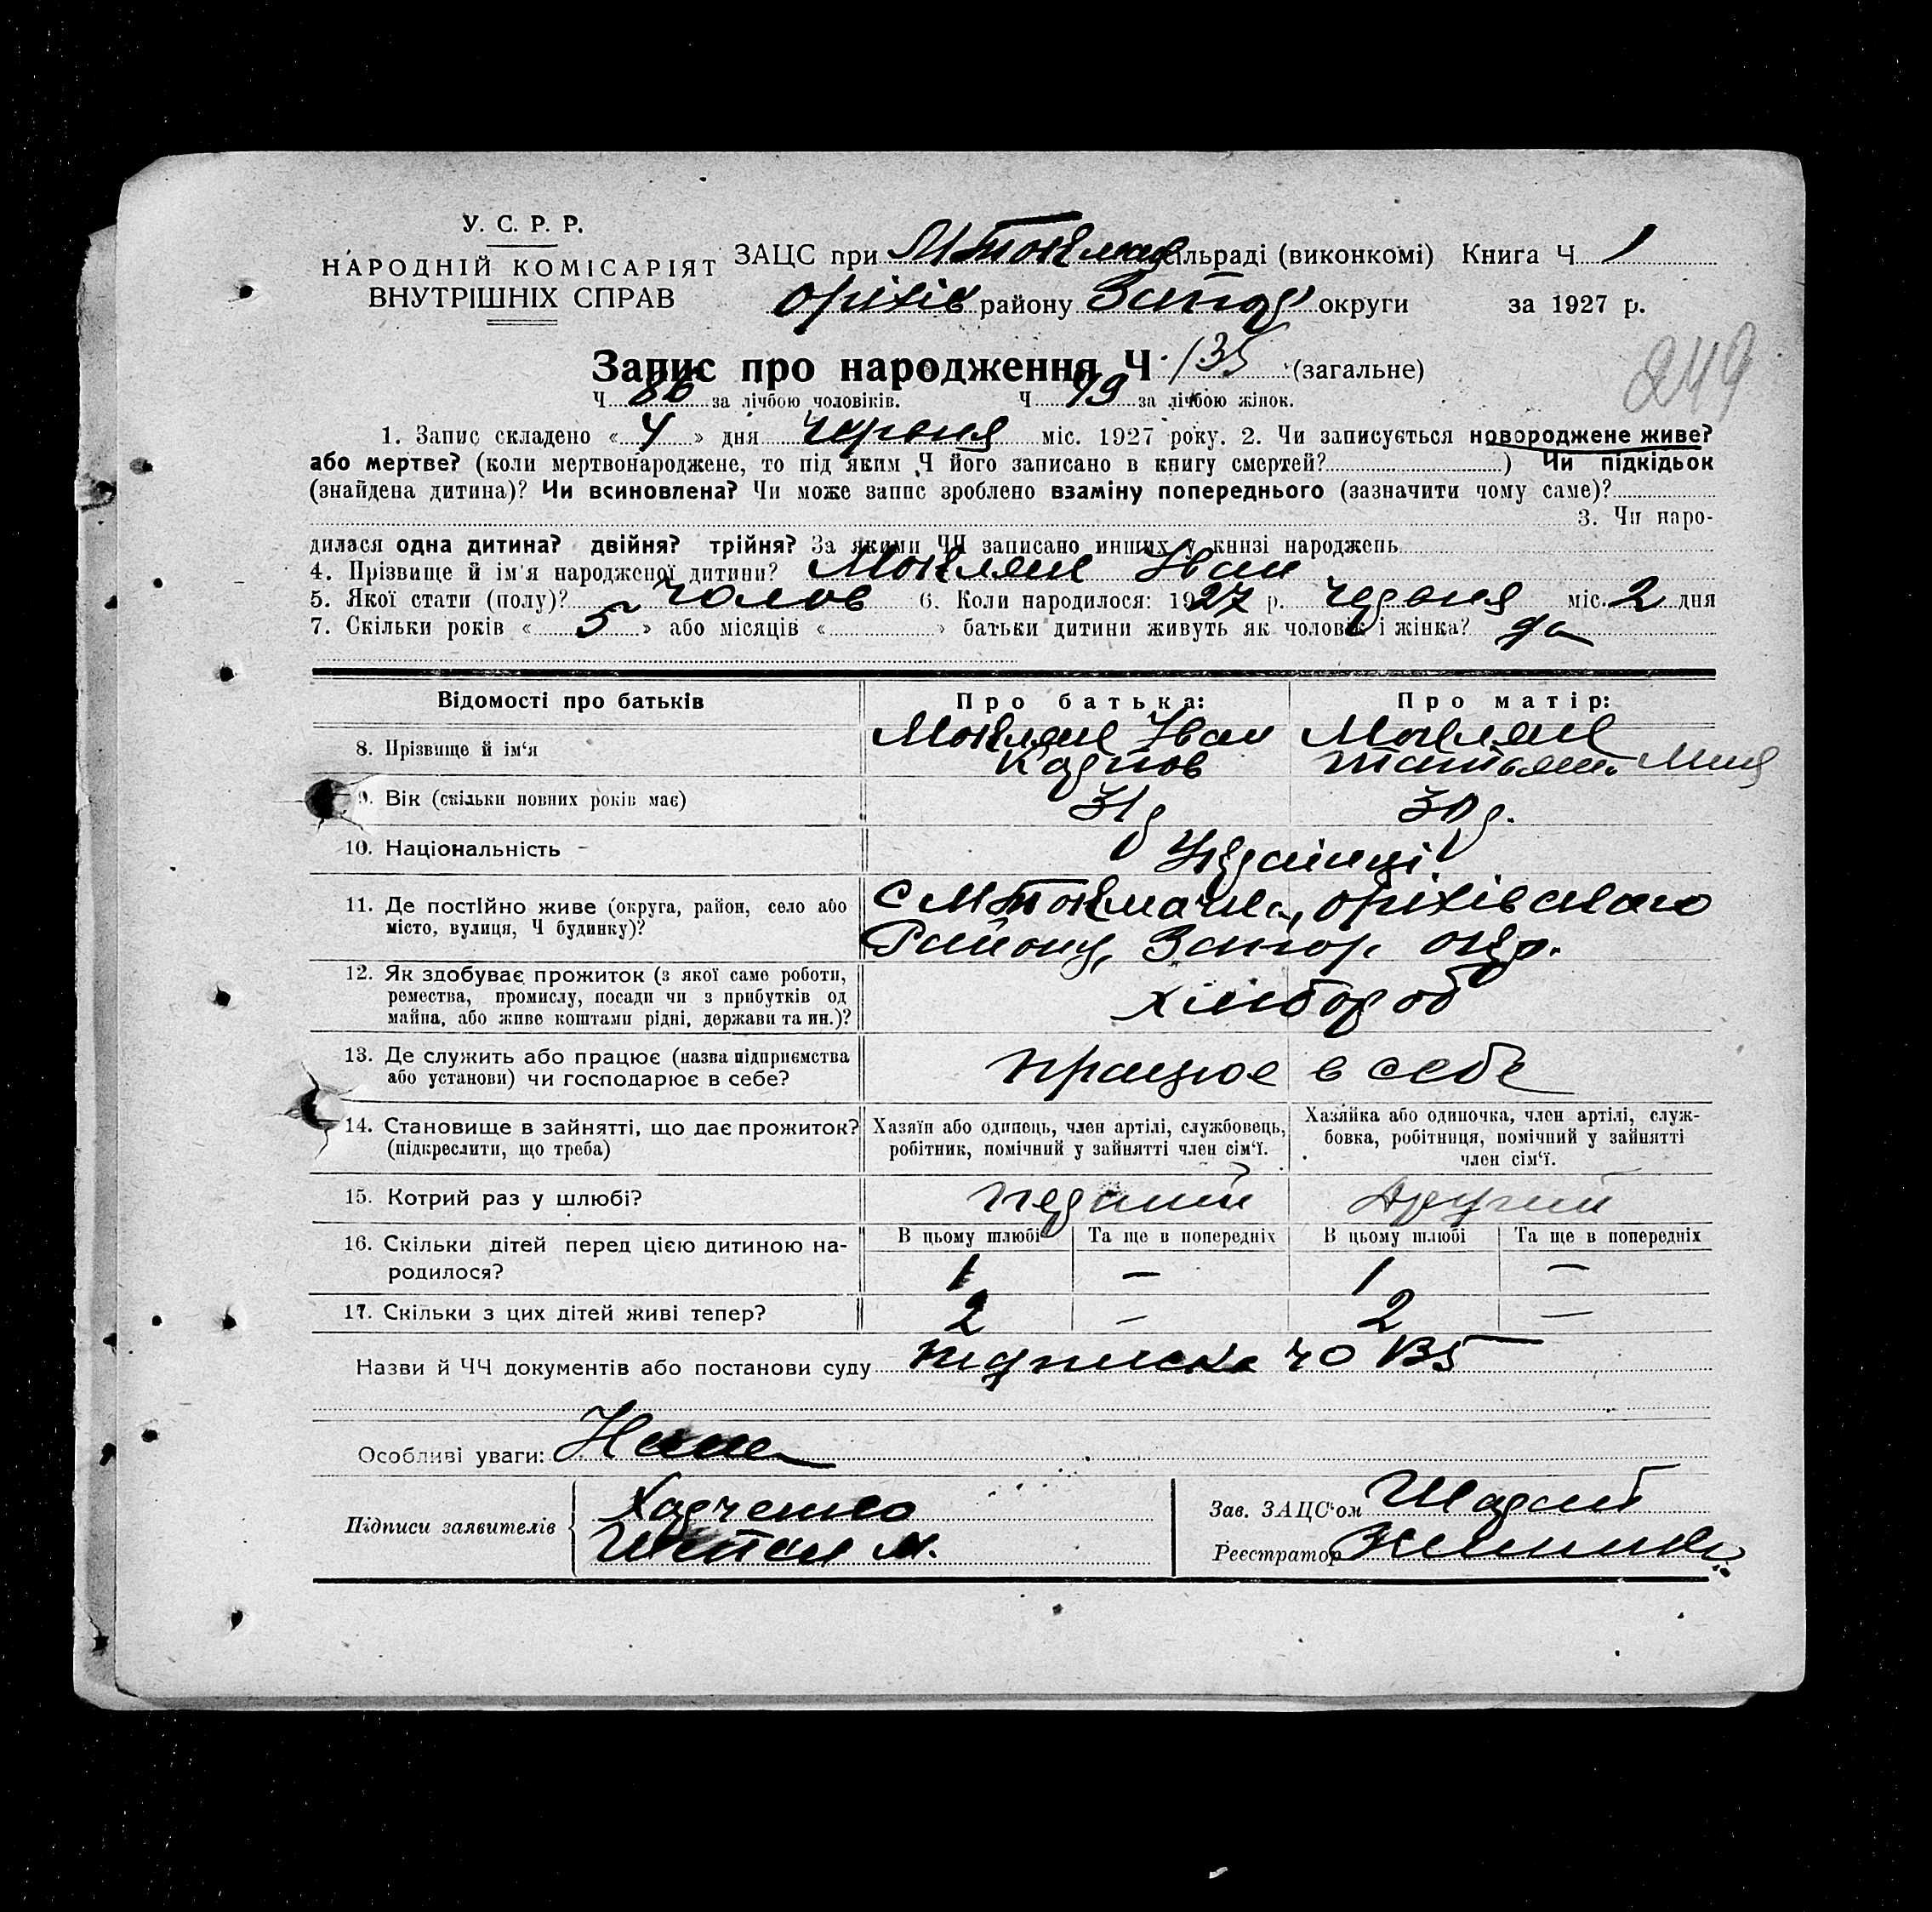 У. С. Р. Р.
НАРОДНІЙ КОМІСАРІЯТ
ВНУТРІШНІХ СПРАВ
ЗАЦС при М Токмац сільраді (виконкомі) Книга Ч 1
Оріхів району Запор округи за 1927 р.
249
Запис про народження Ч. 135 (загальне)
Ч 86 за лічбою чоловіків. Ч 49 за лічбою жінок.
1. Запис складено « 4 » дня червня міс. 1927 року. 2. Чи записується новороджене живе?
або мертве? (коли мертвонароджене, то під яким Ч його записано в книгу смертей?) Чи підкідьок
(знайдена дитина)? Чи всиновлена? Чи може запис зроблено взаміну попереднього (зазначити чому саме)?
3. Чи наро-
дилася одна дитина? двійня? трійня? За якими ЧЧ записано инших у книзі народжень
4. Прізвище й ім'я народженої дитини? Іван
5. Якої стати (полу)? чолов 6. Коли народилося: 1927 р. червня міс. 2 дня
7. Скільки років « 5 » або місяців « » батьки дитини живуть як чоловік і жінка? да
Відомості про батьків Про батька: Про матір:
8. Прізвище й ім'я Іван
Карпов
9. Вік (скільки повних років має) 31 р 30 р.
10. Національність – Українці
11. Де постійно живе (округа, район, село або С М Токмачка, Оріхівського
місто, вулиця, Ч будинку)? Району, Запор. окр.
12. Як здобуває прожиток (з якої саме роботи,
ремества, промислу, посади чи з прибутків од хлібороб
майна, або живе коштами рідні, держави та ин.)?
13. Де служить або працює (назва підприємства працює в себе
або установи) чи господарює в себе?
14. Становище в зайнятті, що дає прожиток? Хазяїн або одинець, член артілі, службовець, Хазяйка або одиночка, член артілі, служ-
(підкреслити, що треба) робітник, помічний у зайнятті член сім'ї. бовка, робітниця, помічний у зайнятті
член сім'ї.
15. Котрий раз у шлюбі? первий другий
16. Скільки дітей перед цією дитиною на- В цьому шлюбі Та ще в попередніх В цьому шлюбі Та ще в попередніх
родилося? 1 — 1 —
17. Скільки з цих дітей живі тепер? 2 — 2 —
Назви й ЧЧ документів або постанови суду підписка
Особливі уваги: Нема
Підписи заявителів Харченко
Зав. ЗАЦС'ом
Реєстратор